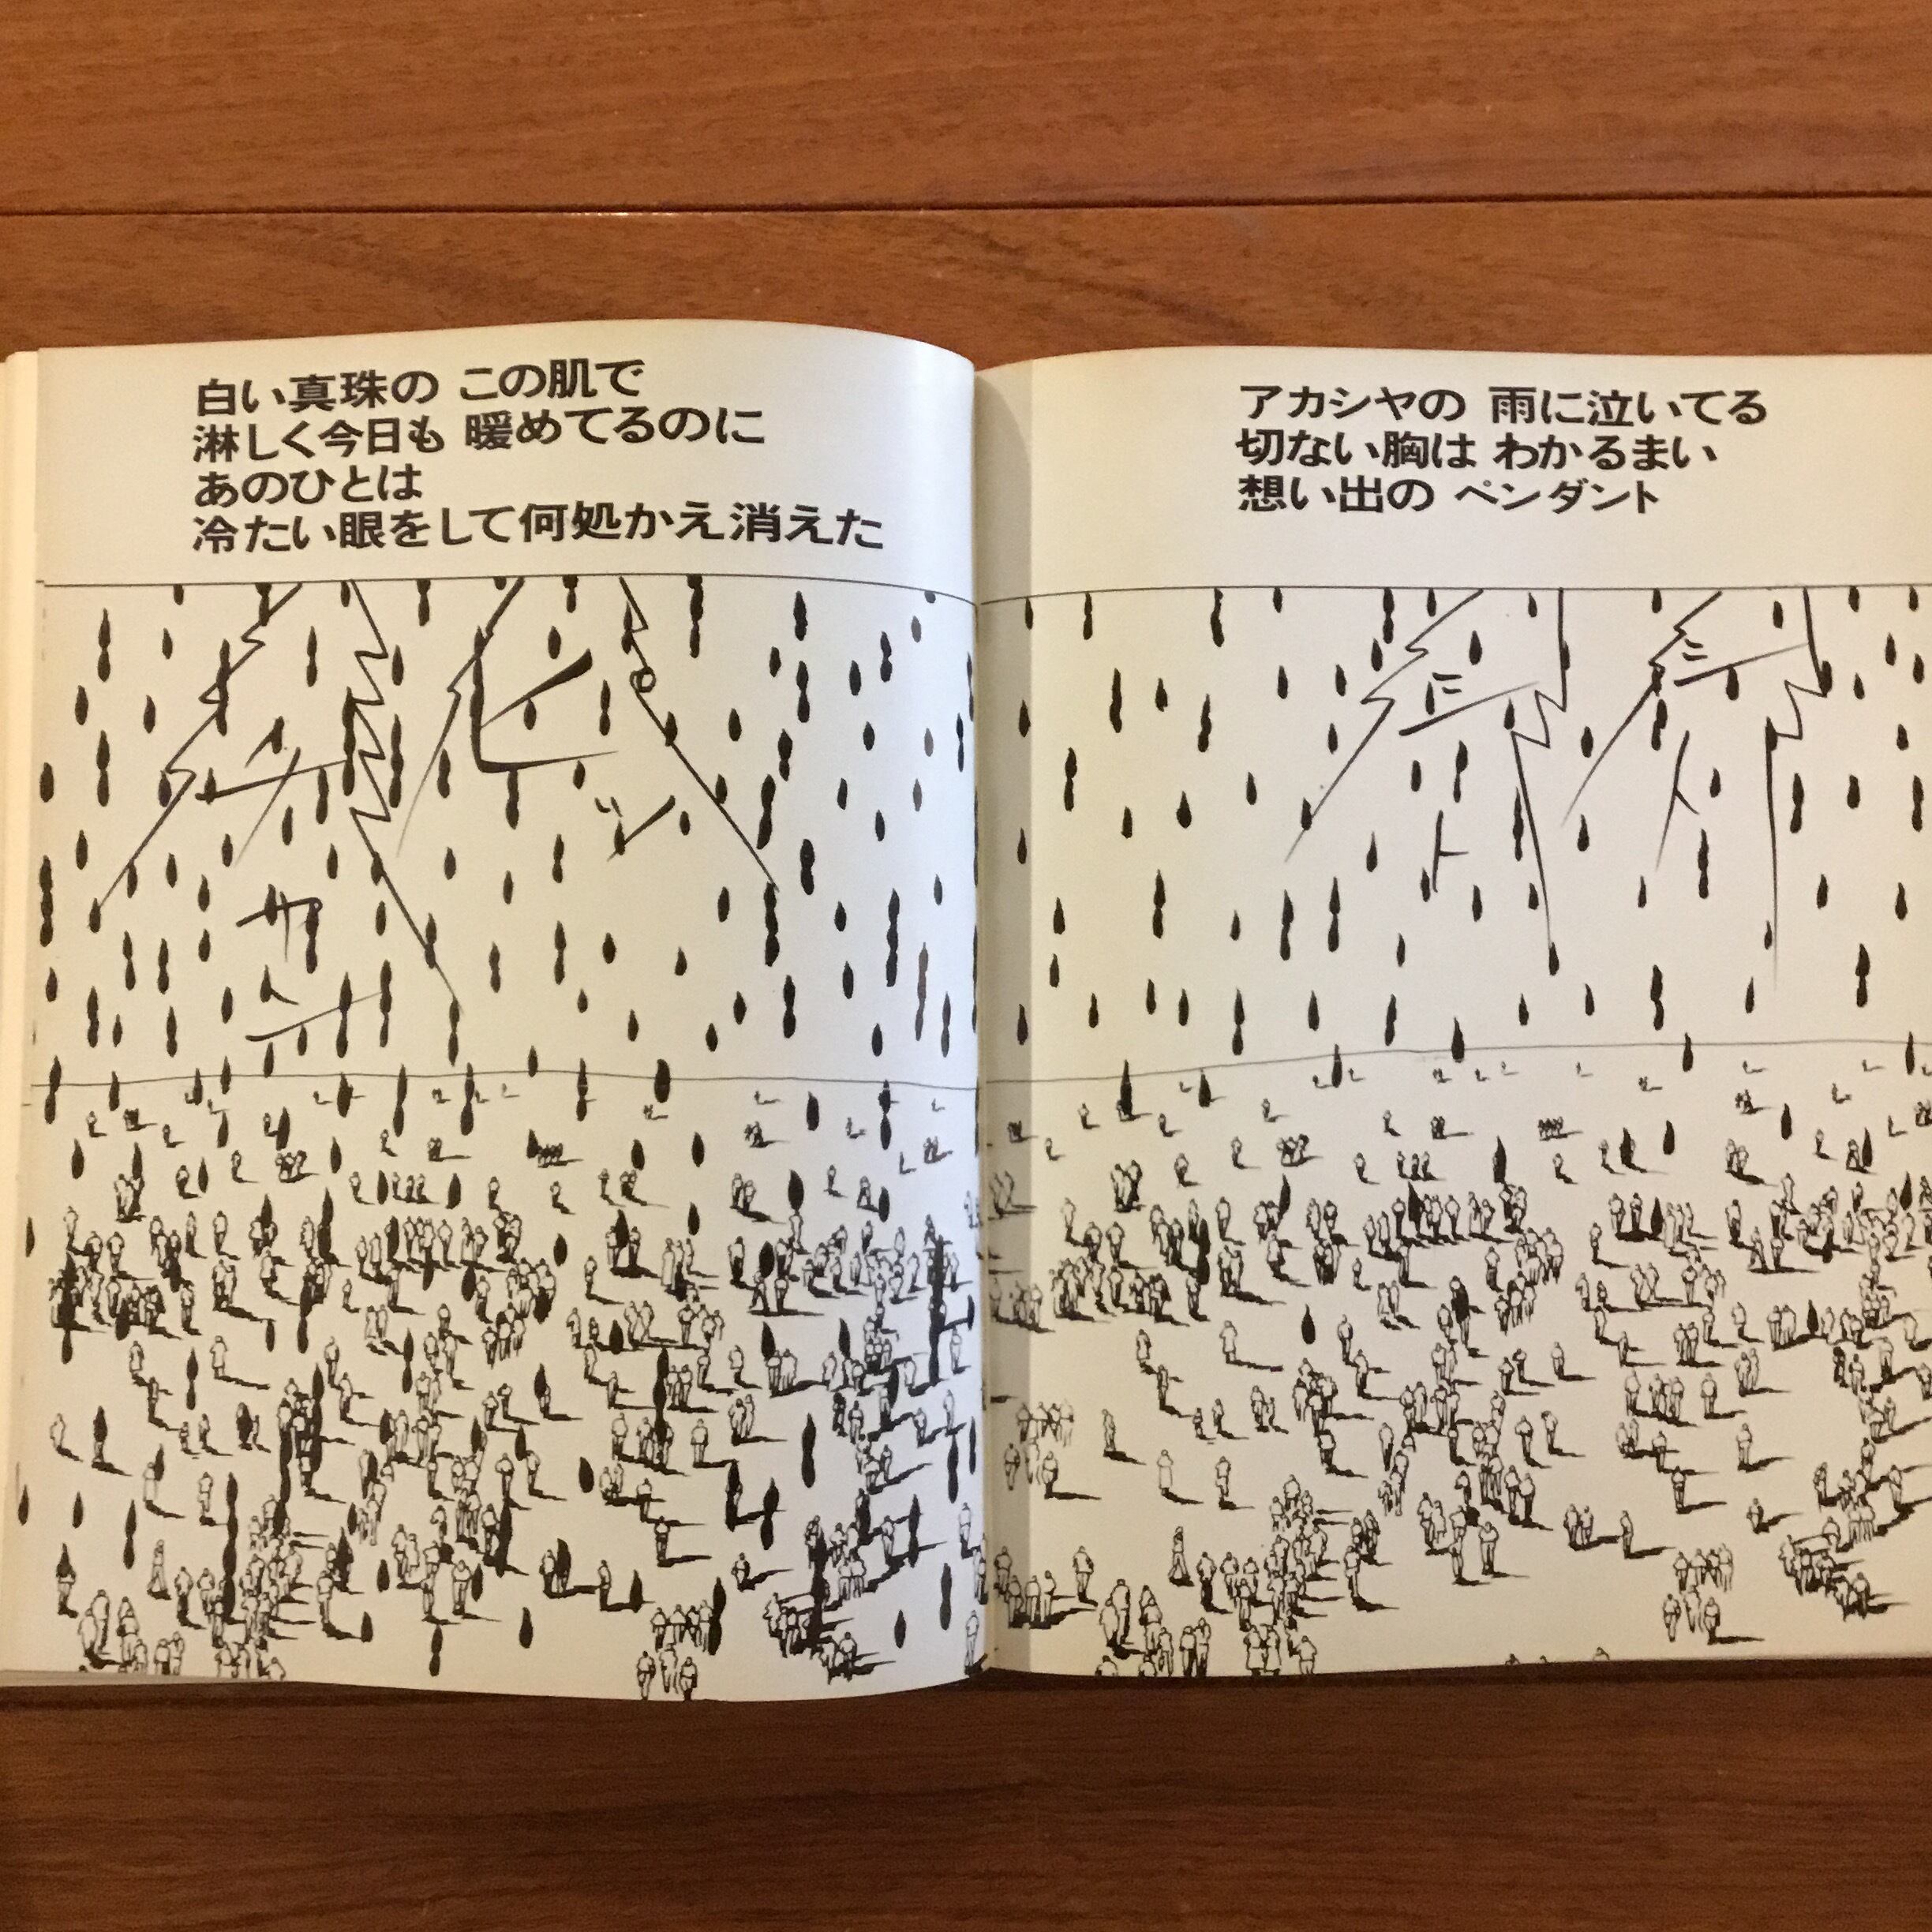 白い真珠の この肌で
淋しく今日も 暖めてるのに
あのひとは
冷たい眼をして何処かえ消えた
アカシヤの 雨に泣いてる
切ない胸は わかるまい
想い出の ペンダント